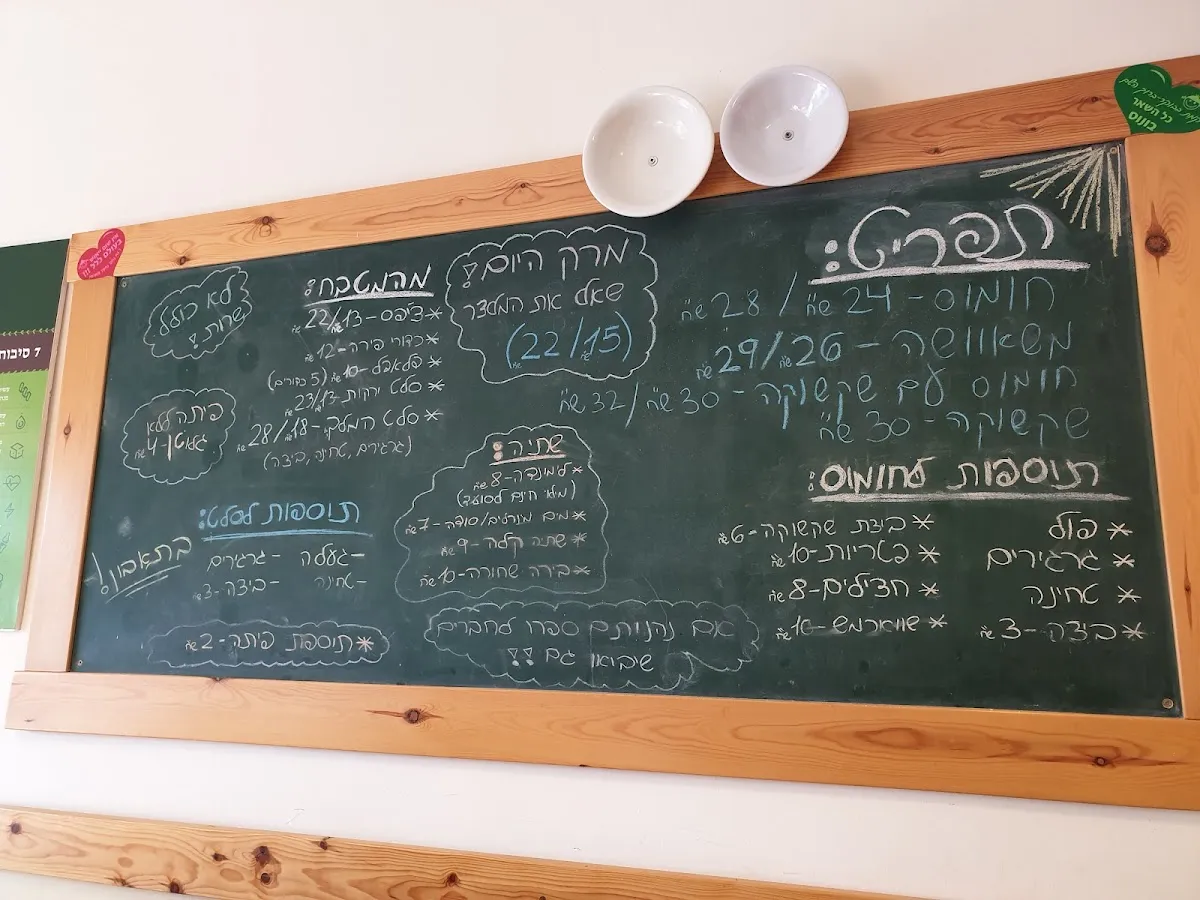 תפריט:
חומוס - 24 ש"ח / 28 ש"ח
משאוושה - 26 ש"ח/29 ש"ח
חומוס עם שקשוקה - 30 ש"ח/32 ש"ח
שקשוקה - 30 ש"ח
תוספות לחומוס:
* פול
* גרגירים
* טחינה
* ביצה - 3 ש"ח
* ביצת שקשוקה - 6 ש"ח
* פטריות - 10 ש"ח
* חצילים - 8 ש"ח
* שווארמש - 16 ש"ח
מרק היום!
שאל את המלצר
(22/15 ש"ח)
שתיה:
* לימונדה - 8 ש"ח
(מלאי חינם לסועד)
* מים מינרלים/סודה - 7 ש"ח
* שתיה קלה - 9 ש"ח
* בירה שחורה - 10 ש"ח
אם נהניתם ספרו לחברים
שיבואו גם !!
מהמטבח:
* צ'יפס - 22/13 ש"ח
* כדורי פירה - 12 ש"ח
* פלאפל - 10 ש"ח (5 כדורים)
* סלט ירקות 23/13 ש"ח
* סלט המלך - 28/18 ש"ח
(גרגירים, טחינה, ביצה)
לא כולל
שרות !
פיתה ללא
גלוטן - 4 ש"ח
תוספות לסלט:
- געלה - גרגירים
- טחינה - ביצה - 3 ש"ח
בתאבון !
* תוספת פיתה - 2 ש"ח
כל השאר
בונוס
בעולם כלל !!!
7 סיבות